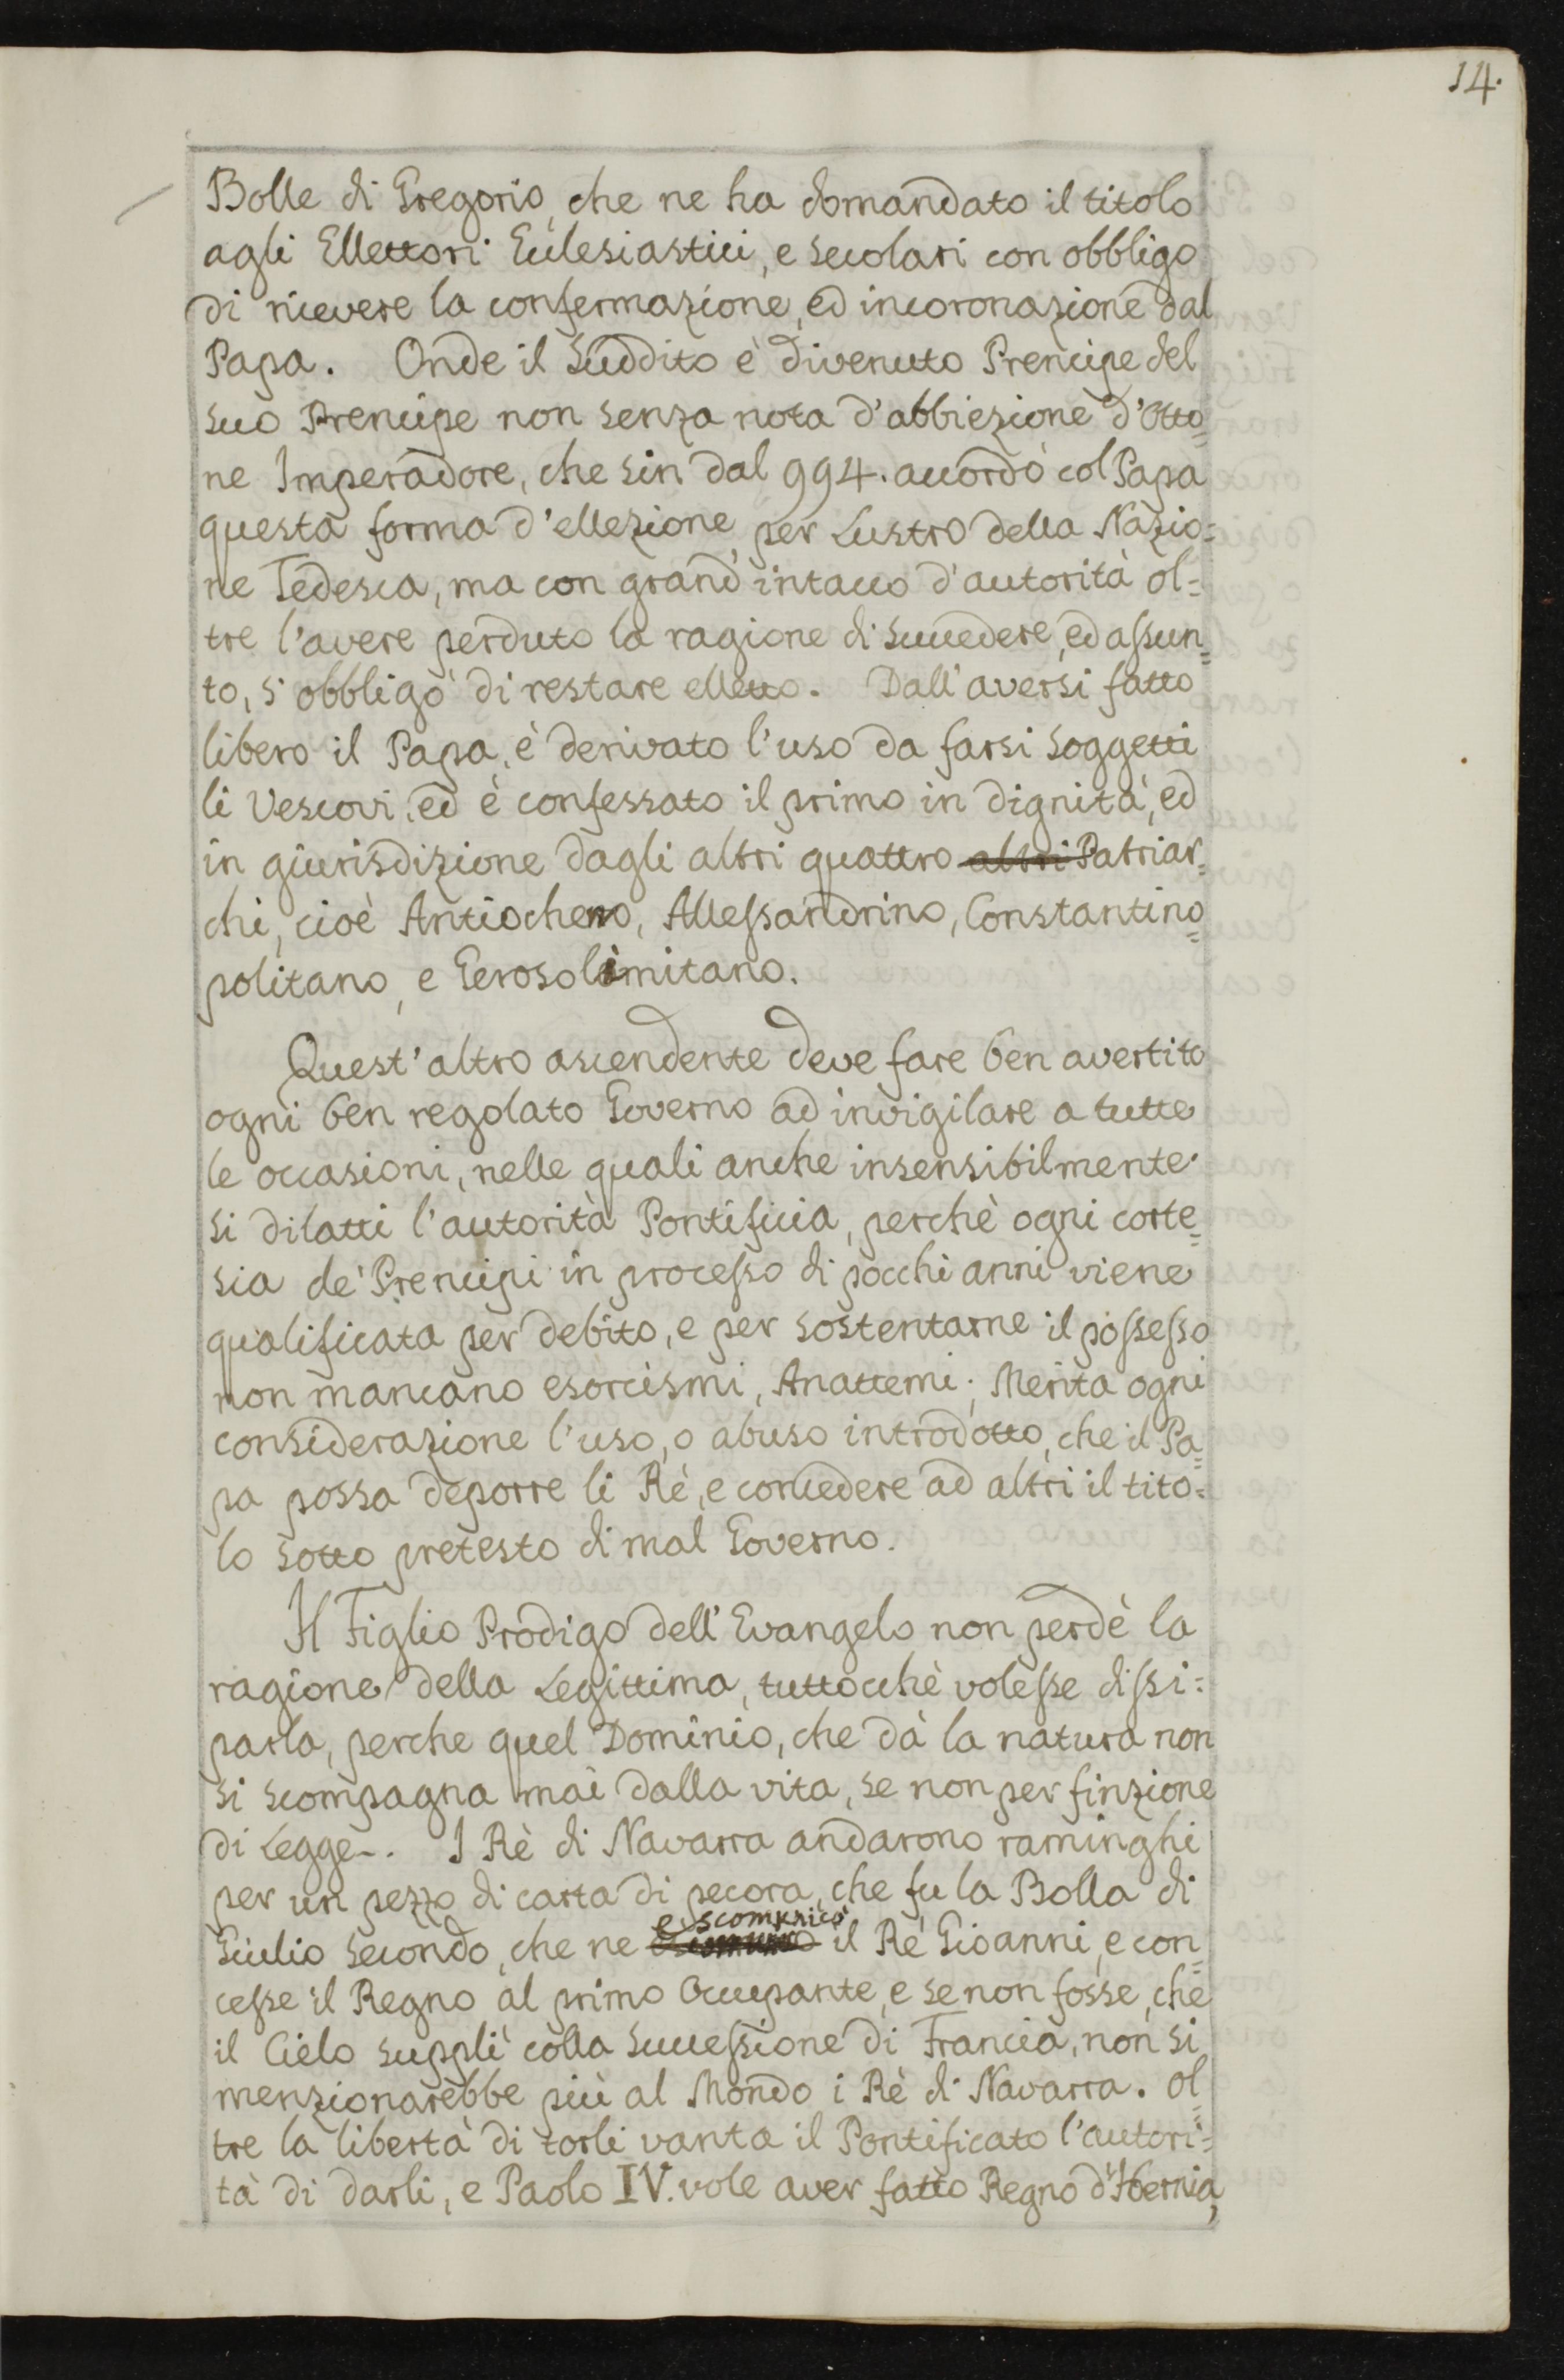 14.
Bolle di Gregorio, che ne ha domandato il titolo
agli Ellettori Ecclesiastici, e secolari con obbligo
di ricevere la confermazione, ed incoronazione dal
Papa. Onde il Suddito è divenuto Prencipe del
suo Prencipe non senza nota d'abbiezione d'Otto=
ne Imperadore, che sin dal 994. accordò col Papa
questa forma d'ellezione, per Lustro della Nazio=
ne Tedesca, ma con grand'intacco d'autorità ol=
tre l'avere perduto la ragione di succedere, ed assun=
to, s'obbligò di restare elletto. Dall'aversi fatto
libero il Papa, è derivato l'uso da farsi soggetti
li Vescovi, ed è confessato il primo in dignità, ed
in giurisdizione dagli altri quattro altri Patriar=
chi, cioè Antiocheno, Allessandrino, Constantino=
politano, e Gerosolimitano.
Quest'altro ascendente deve fare ben avertito
ogni ben regolato Governo ad invigilare a tutte
le occasioni, nelle quali anche insensibilmente
si dilatti l'autorità Pontificia, perchè ogni corte=
sia de' Prencipi in processo di pocchi anni viene
qualificata per debito, e per sostentarne il possesso
non mancano esorcismi, Anattemi; Merita ogni
considerazione l'uso, o abuso introdotto, che il Pa=
pa possa deporre li Rè, e concedere ad altri il tito=
lo sotto pretesto di mal Governo.
Il Figlio Prodigo dell'Evangelo non perdè la
ragione della Legittima, tuttocchè volesse dissi=
parla, perche quel Dominio, che dà la natura non
si scompagna mai dalla vita, se non per finzione
di Legge. I Rè di Navarra andarono raminghi
per un pezzo di carta di pecora, che fu la Bolla di
Giulio Secondo, che ne escomunicò il Rè Gioanni, e con=
cesse il Regno al primo Occupante, e se non fosse, che
il Cielo supplì colla successione di Francia, non si
menzionarebbe più al Mondo i Rè di Navarra. Ol=
tre la libertà di torli vanta il Pontificato l'autori=
tà di darli, e Paolo IV. vole aver fatto Regno d'Ibernia,